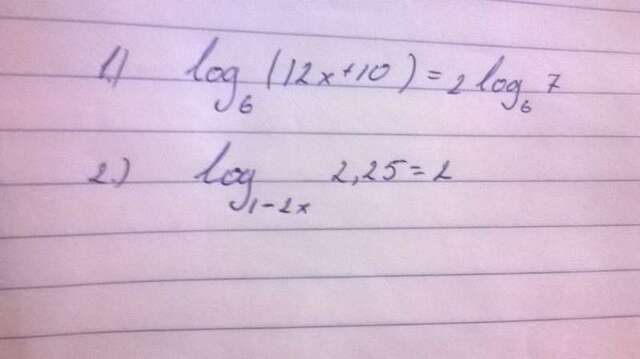 1.) log₆ (12x+10) = 2 log₆ 7
2.) log₁₋₂ₓ 2,25 = 2